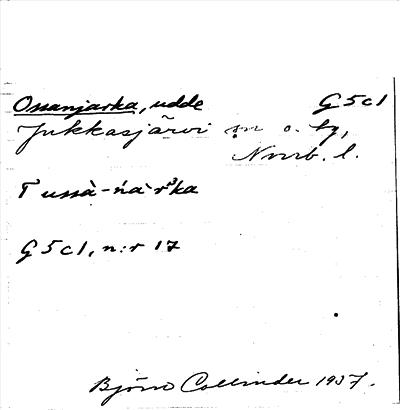 Ossanjarka, udde G5c1
Jukkasjärvi sn o. tg,
Norrb. l.
T ussà-ńàrˈka
G5c1, n:r 17
Björn Collinder 1937.